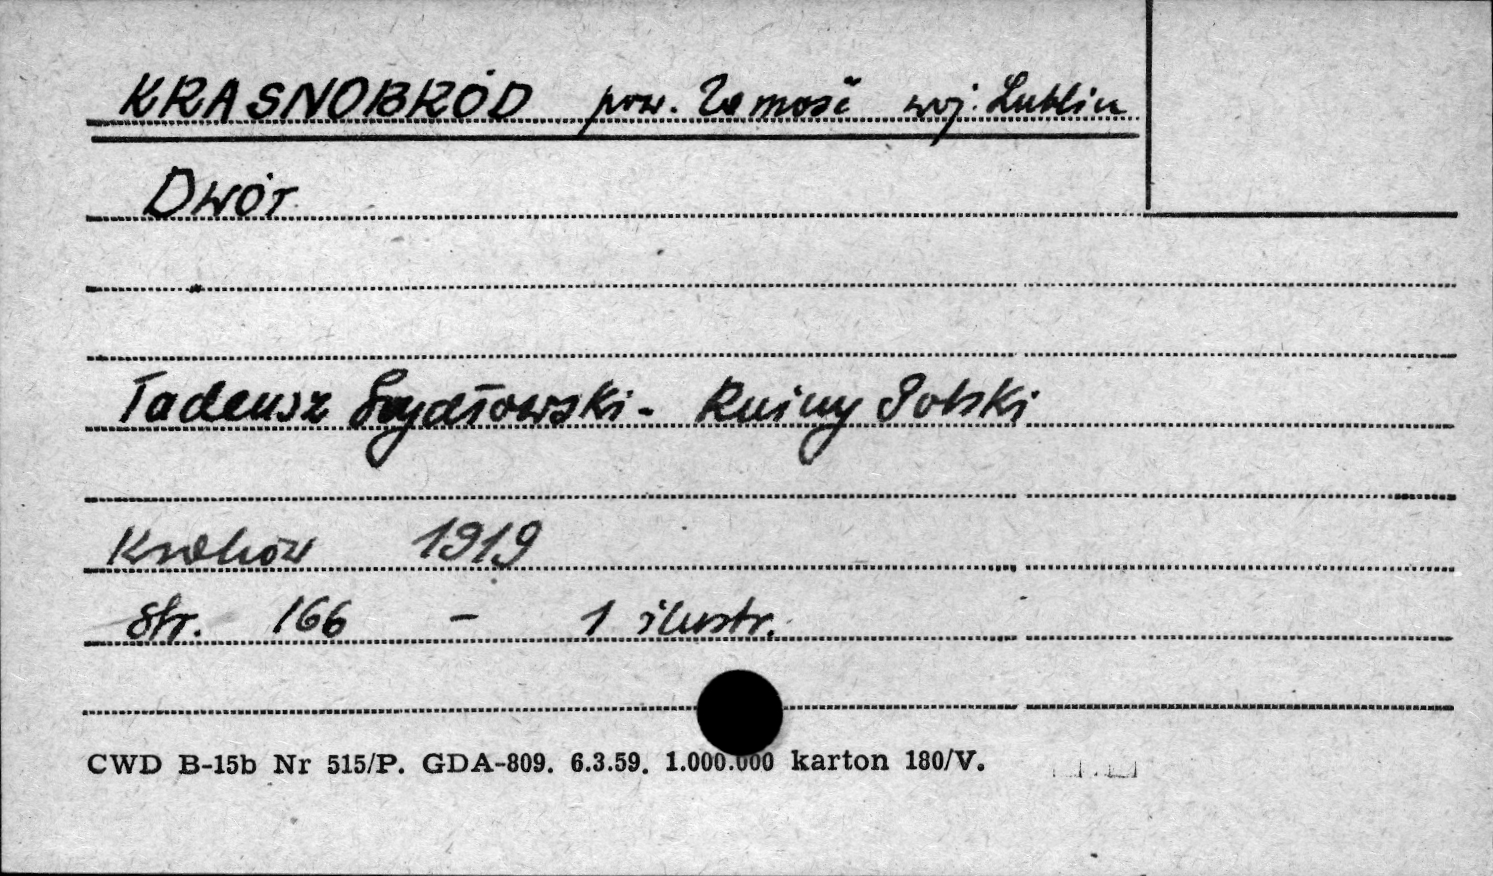 KRASNOBRÓD pow. Zamość woj. Lublin
Dwór
Tadeusz Szydłowski - Ruiny Polski
Kraków 1919
Str. 166 - 1 ilustr.
CWD B-15b Nr 515/P. GDA-809. 6.3.59. 1.000.000 karton 180/V.